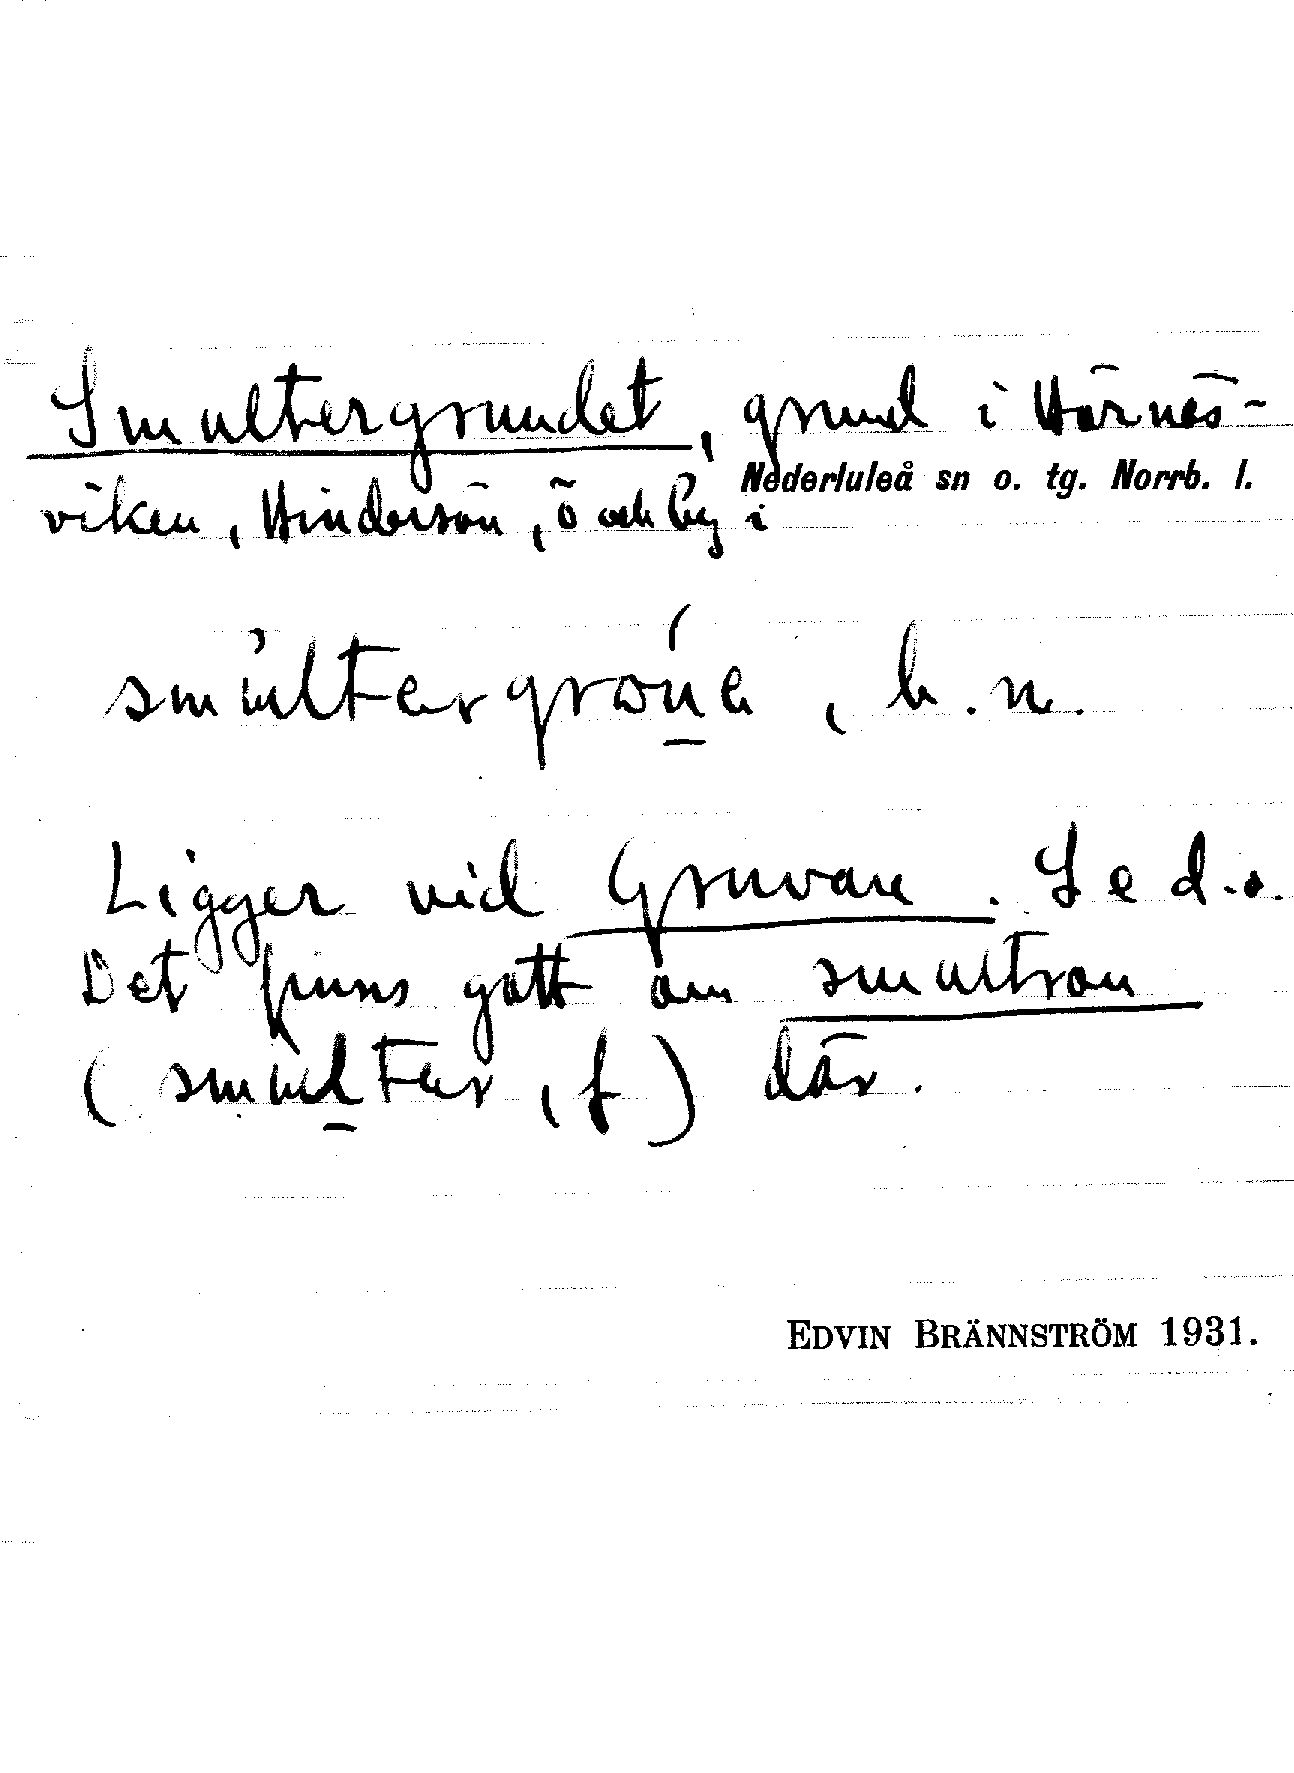 Smultergrundet, grund i Härnäs-
Nederluleå sn o. tg. Norrb. l.
viken, Hindersön, ö och by i
smultergrona, b.n.
Ligger vid Gruvan. Se d.o.
Det finns gott om smultron
(smulter, f) där.
EDVIN BRÄNNSTRÖM 1931.